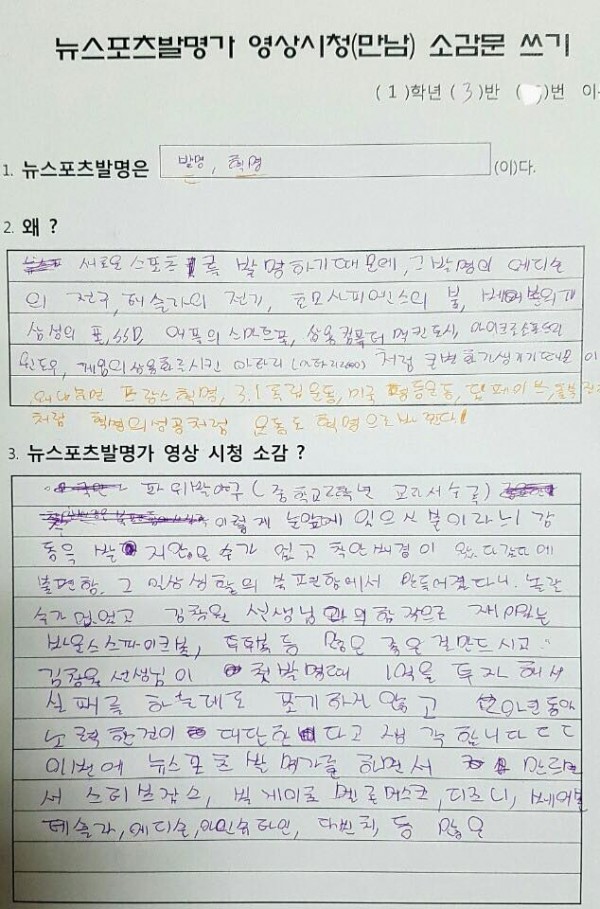 뉴스포츠발명가 영상시청(만남) 소감문 쓰기
( 1 )학년 ( 3 )반 ( )번 이
1. 뉴스포츠발명은 발명, 혁명 (이)다.
2. 왜 ?
새로운 스포츠를 발명하기때문에, 그 발명의 에디슨
의 전구, 테슬라의 전기, 호모사피엔스의 불,
애플의 스마트폰, 상용컴퓨터 맥킨토시, 마이크로소프트의
윈도우, 게임의 상용화를시킨 아타리 처럼 큰변화가생기기때문이
프랑스혁명, 3.1독립운동, 미국
처럼 혁명의성공처럼 운동도 혁명으로바
3. 뉴스포츠발명가 영상 시청 소감 ?
파워발야구 ( 중학교 교과서수록 )
이렇게 눈앞에 있으신 분이라니 감
동을 수가 없고 왔다갔다에
불편함. 그 일상생활의 불편함에서 만들어졌다니. 놀랄
수가 없었고 김창원 선생님과의 합작으로 재미있는
바운스스파이크볼, 등 많은 좋은 걸만드시고
김창원 선생님이 첫발명때 1억을 투자해서
실패를 하는데도 포기하지 않고 20년동안
노력한것이 대단한 다고 생각합니다 ㄷㄷ
이번에 뉴스포츠 발명가를 하면서 만드면
서 스티브잡스, 빌게이츠 멜론머스크, 디즈니,
테슬라, 에디슨, 아인슈타인, 다빈치, 등 많은